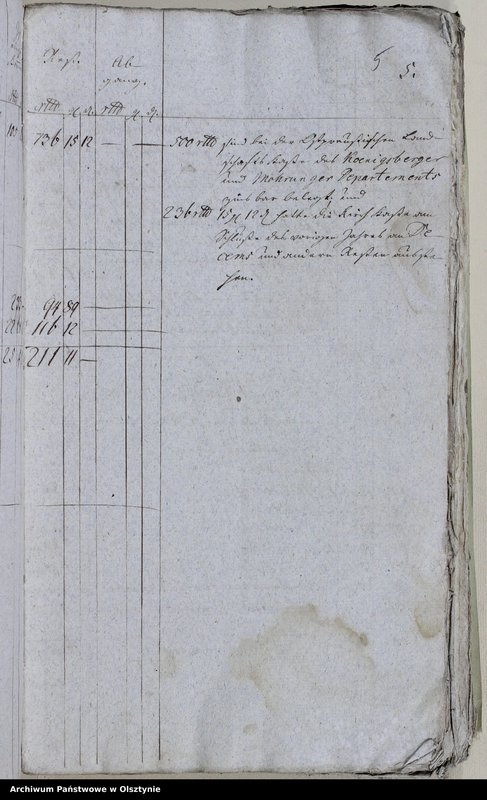 5 5.
Rest.
Ab-
gang.
rtlr g d rtlr g d
736 15 12 — —
500 rtlr sind bei der Ostpreußischen Land-
schafts Kaße des Koenigsberger
und Mohrunger Departements
zinsbar belegt, und
236 rtlr 15 g 12 d hatte die Kirch Kaße am
Schluße des vorigen Jahres an De-
cems und andern Resten ausste-
hen.
94 89
116 12
211 11 —
Archiwum Państwowe w Olsztynie